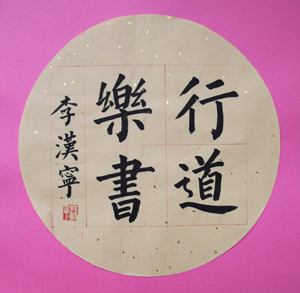 行道
樂書
李漢寧